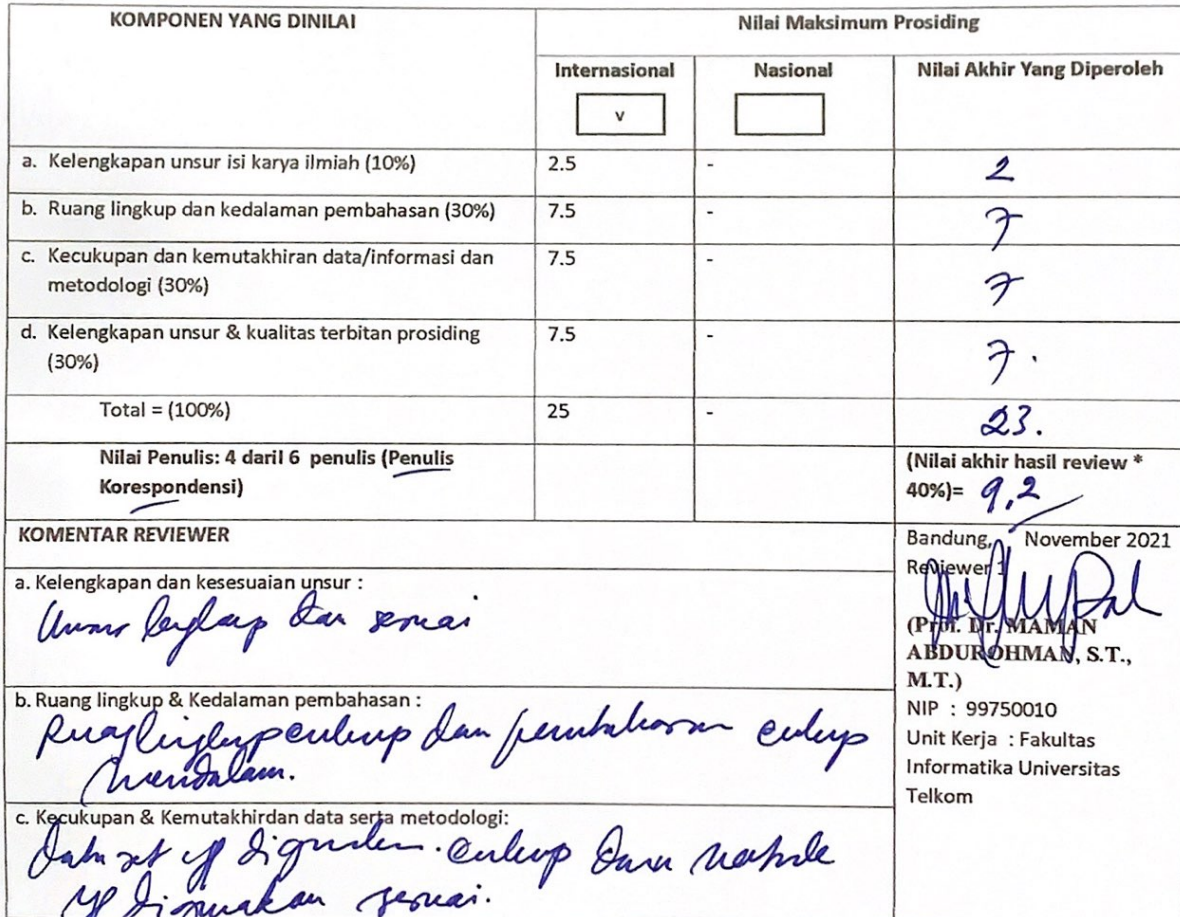 KOMPONEN YANG DINILAI
Nilai Maksimum Prosiding
Internasional
Nasional
Nilai Akhir Yang Diperoleh
v
a. Kelengkapan unsur isi karya ilmiah (10%)
2.5
-
2
b. Ruang lingkup dan kedalaman pembahasan (30%)
7.5
-
7
c. Kecukupan dan kemutakhiran data/informasi dan
metodologi (30%)
7.5
-
7
d. Kelengkapan unsur & kualitas terbitan prosiding
(30%)
7.5
-
7.
Total = (100%)
25
-
23.
Nilai Penulis: 4 daril 6 penulis (Penulis
Korespondensi)
(Nilai akhir hasil review *
40%)= 9,2
KOMENTAR REVIEWER
a. Kelengkapan dan kesesuaian unsur :
Unsur lengkap dan sesuai
b. Ruang lingkup & Kedalaman pembahasan :
Ruang lingkup cukup dan pembahasan cukup
mendalam.
c. Kecukupan & Kemutakhirdan data serta metodologi:
Data set yg digunakan cukup dan metode
yg digunakan sesuai.
Bandung, November 2021
Reviewer 1
(Prof. Dr. MAMAN
ABDUROHMAN, S.T.,
M.T.)
NIP : 99750010
Unit Kerja : Fakultas
Informatika Universitas
Telkom